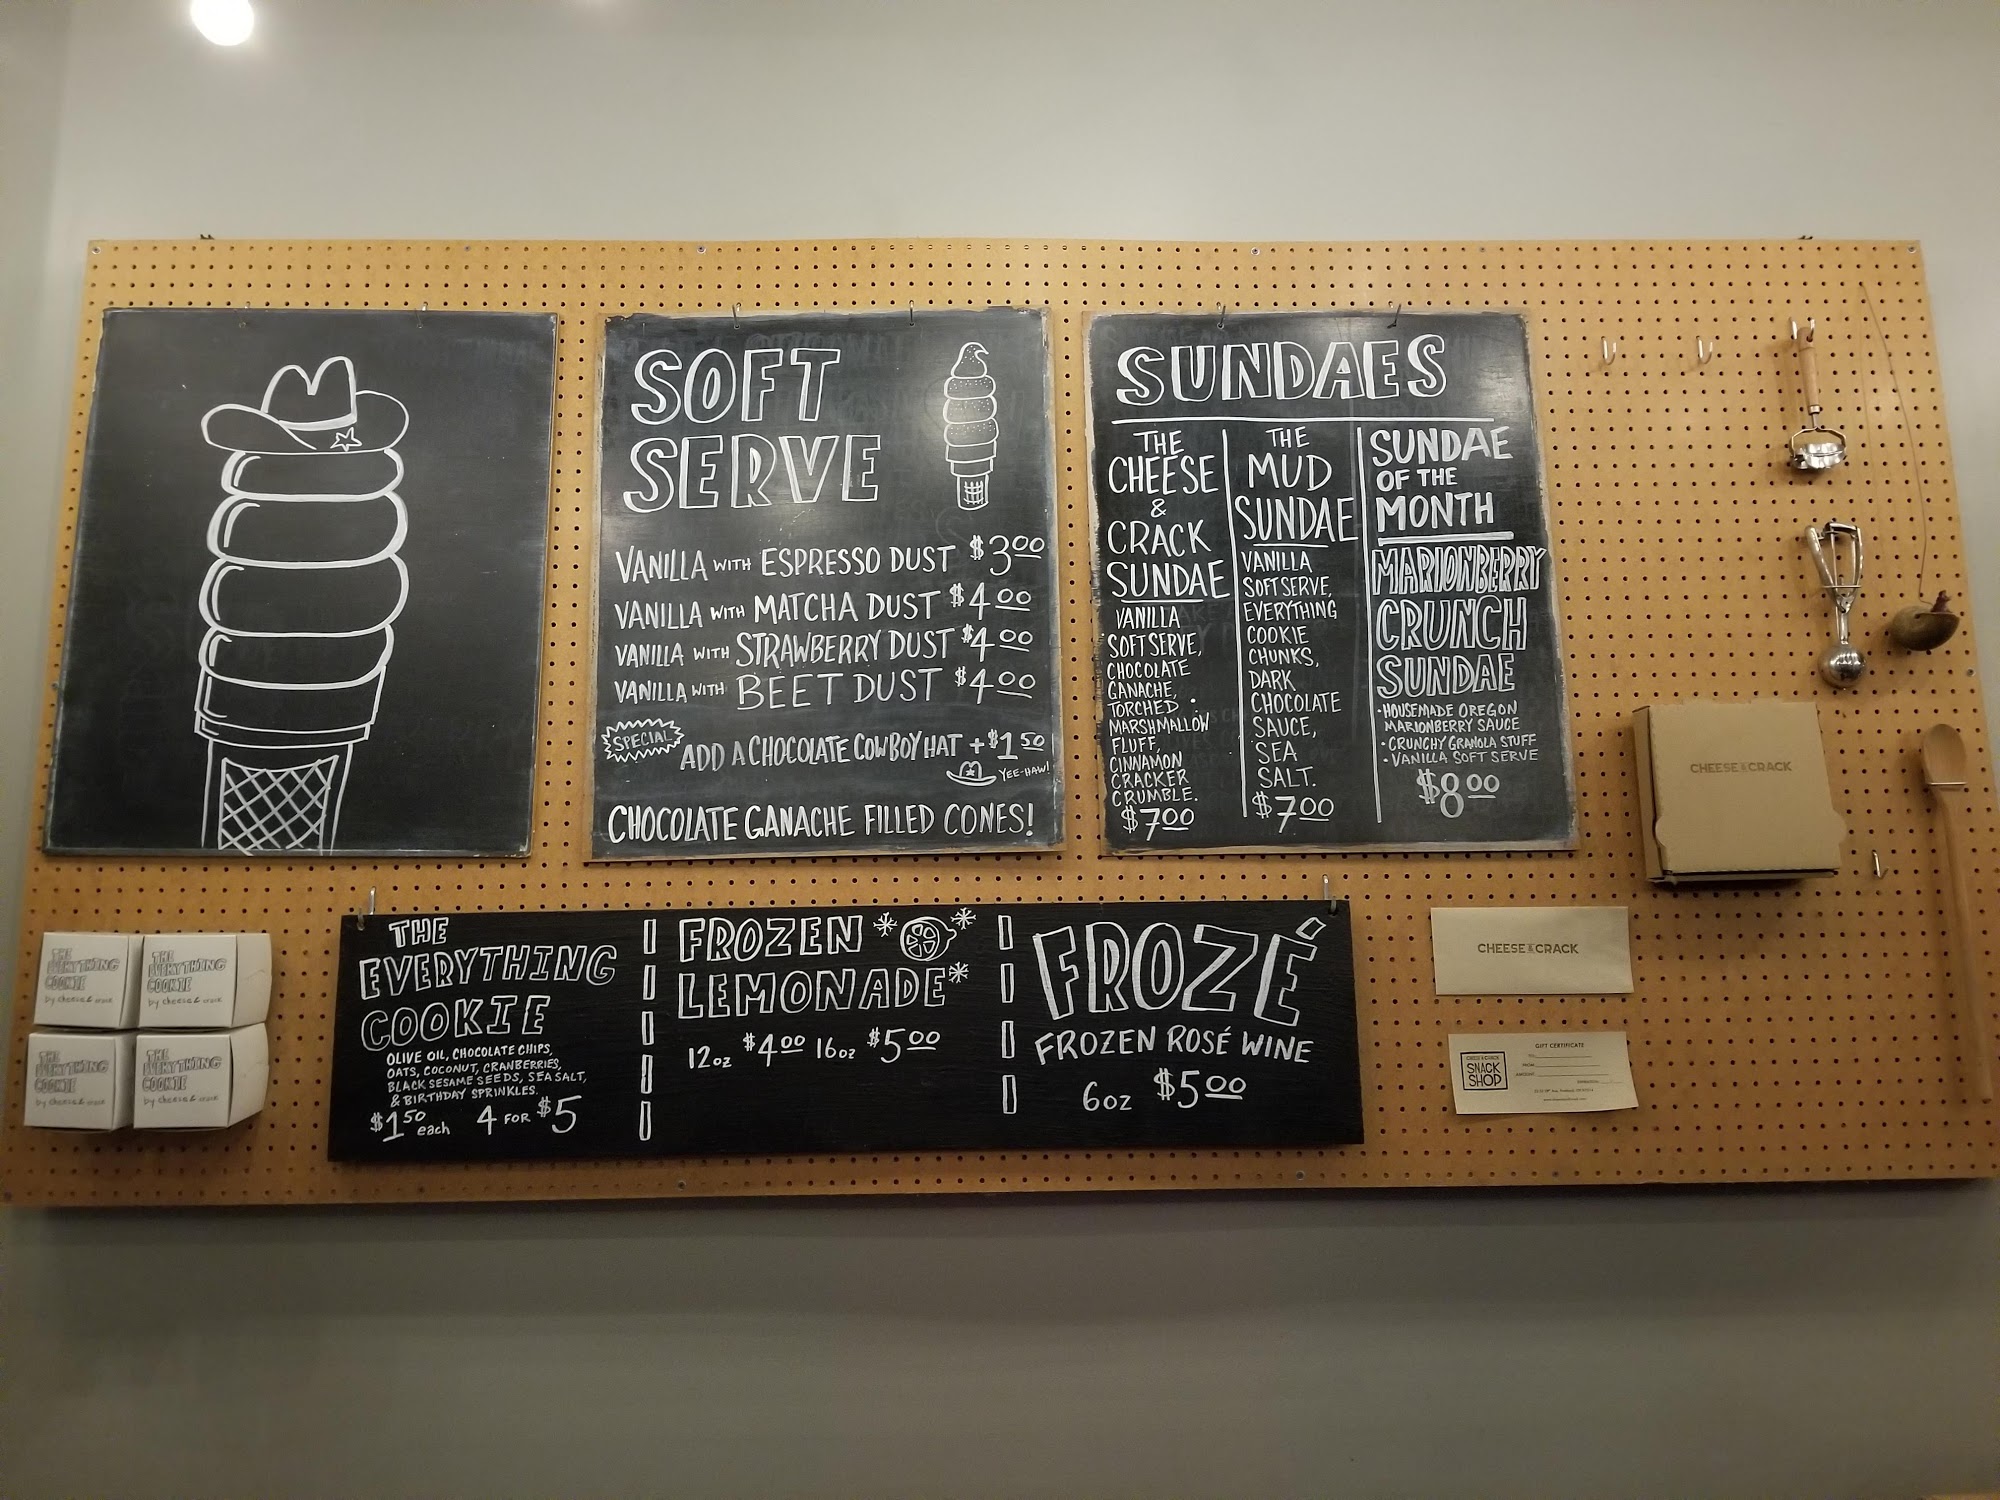 SOFT
SERVE
VANILLA WITH ESPRESSO DUST $3.00
VANILLA WITH MATCHA DUST $4.00
VANILLA WITH STRAWBERRY DUST $4.00
VANILLA WITH BEET DUST $4.00
SPECIAL
ADD A CHOCOLATE COWBOY HAT +$1.50
YEE-HAW!
CHOCOLATE GANACHE FILLED CONES!
SUNDAES
THE
CHEESE
&
CRACK
SUNDAE
VANILLA
SOFT SERVE,
CHOCOLATE
GANACHE,
TORCHED
MARSHMALLOW
FLUFF,
CINNAMON
CRACKER
CRUMBLE.
$7.00
THE
MUD
SUNDAE
VANILLA
SOFT SERVE,
EVERYTHING
COOKIE
CHUNKS,
DARK
CHOCOLATE
SAUCE,
SEA
SALT.
$7.00
SUNDAE
OF THE
MONTH
MARIONBERRY
CRUNCH
SUNDAE
•HOUSEMADE OREGON
MARIONBERRY SAUCE
•CRUNCHY GRANOLA STUFF
•VANILLA SOFT SERVE
$8.00
CHEESE & CRACK
THE
EVERYTHING
COOKIE
by cheese & crack
THE
EVERYTHING
COOKIE
by cheese & crack
THE
EVERYTHING
COOKIE
by cheese & crack
THE
EVERYTHING
COOKIE
by cheese & crack
THE
EVERYTHING
COOKIE
OLIVE OIL, CHOCOLATE CHIPS,
OATS, COCONUT, CRANBERRIES,
BLACK SESAME SEEDS, SEA SALT,
& BIRTHDAY SPRINKLES.
$1.50 each 4 FOR $5
FROZEN
LEMONADE
12oz $4.00 16oz $5.00
FROZÉ
FROZEN ROSÉ WINE
6oz $5.00
CHEESE & CRACK
GIFT CERTIFICATE
CHEESE & CRACK
SNACK
SHOP